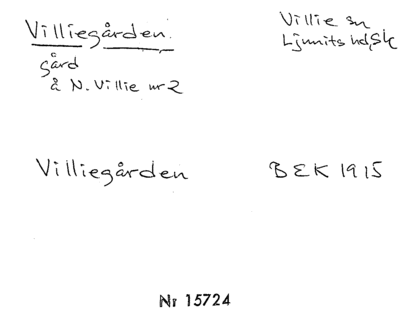 Villiegården.
Villie sn
Ljunits hd, Sk
gård
å N. Villie nr 2
Villiegården
BEK 1915
Nr 15724